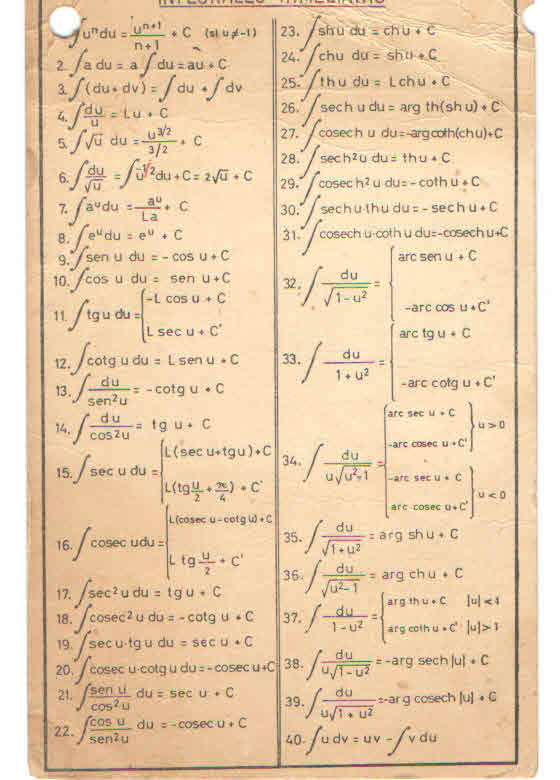 INTEGRALES INMEDIATAS
∫uⁿdu = uⁿ⁺¹/n+1 + C (si u≠-1)
2. ∫a du = a∫du = au + C
3. ∫(du+dv) = ∫du + ∫dv
4. ∫du/u = Lu + C
5. ∫√u du = u^3/2/3/2 + C
6. ∫du/√u = ∫u^-1/2 du + C = 2√u + C
7. ∫aᵘdu = aᵘ/La + C
8. ∫eᵘdu = eᵘ + C
9. ∫sen u du = -cos u + C
10. ∫cos u du = sen u + C
11. ∫tg u du = { -L cos u + C
L sec u + C'
12. ∫cotg u du = L sen u + C
13. ∫du/sen²u = -cotg u + C
14. ∫du/cos²u = tg u + C
15. ∫sec u du = { L(sec u+tg u)+C
L(tg u/2 + π/4) + C'
16. ∫cosec u du = { L(cosec u-cotg u)+C
L tg u/2 + C'
17. ∫sec² u du = tg u + C
18. ∫cosec² u du = -cotg u + C
19. ∫sec u·tg u du = sec u + C
20. ∫cosec u·cotg u du = -cosec u+C
21. ∫sen u/cos²u du = sec u + C
22. ∫cos u/sen²u du = -cosec u + C
23. ∫sh u du = ch u + C
24. ∫ch u du = sh u + C
25. ∫th u du = L ch u + C
26. ∫sech u du = arg th(sh u) + C
27. ∫cosech u du = -arg coth(ch u)+C
28. ∫sech² u du = th u + C
29. ∫cosech² u du = -coth u + C
30. ∫sech u·th u du = -sech u + C
31. ∫cosech u·coth u du = -cosech u+C
32. ∫du/√1-u² = { arc sen u + C
-arc cos u + C'
33. ∫du/1+u² = { arc tg u + C
-arc cotg u + C'
34. ∫du/u√u²-1 = { arc sec u + C
-arc cosec u+C' } u>0
-arc sec u + C
arc cosec u+C' } u<0
35. ∫du/√1+u² = arg sh u + C
36. ∫du/√u²-1 = arg ch u + C
37. ∫du/1-u² = { arg th u + C |u|<1
arg coth u + C' |u|>1
38. ∫du/u√1-u² = -arg sech |u| + C
39. ∫du/u√1+u² = -arg cosech |u| + C
40. ∫u dv = uv - ∫v du